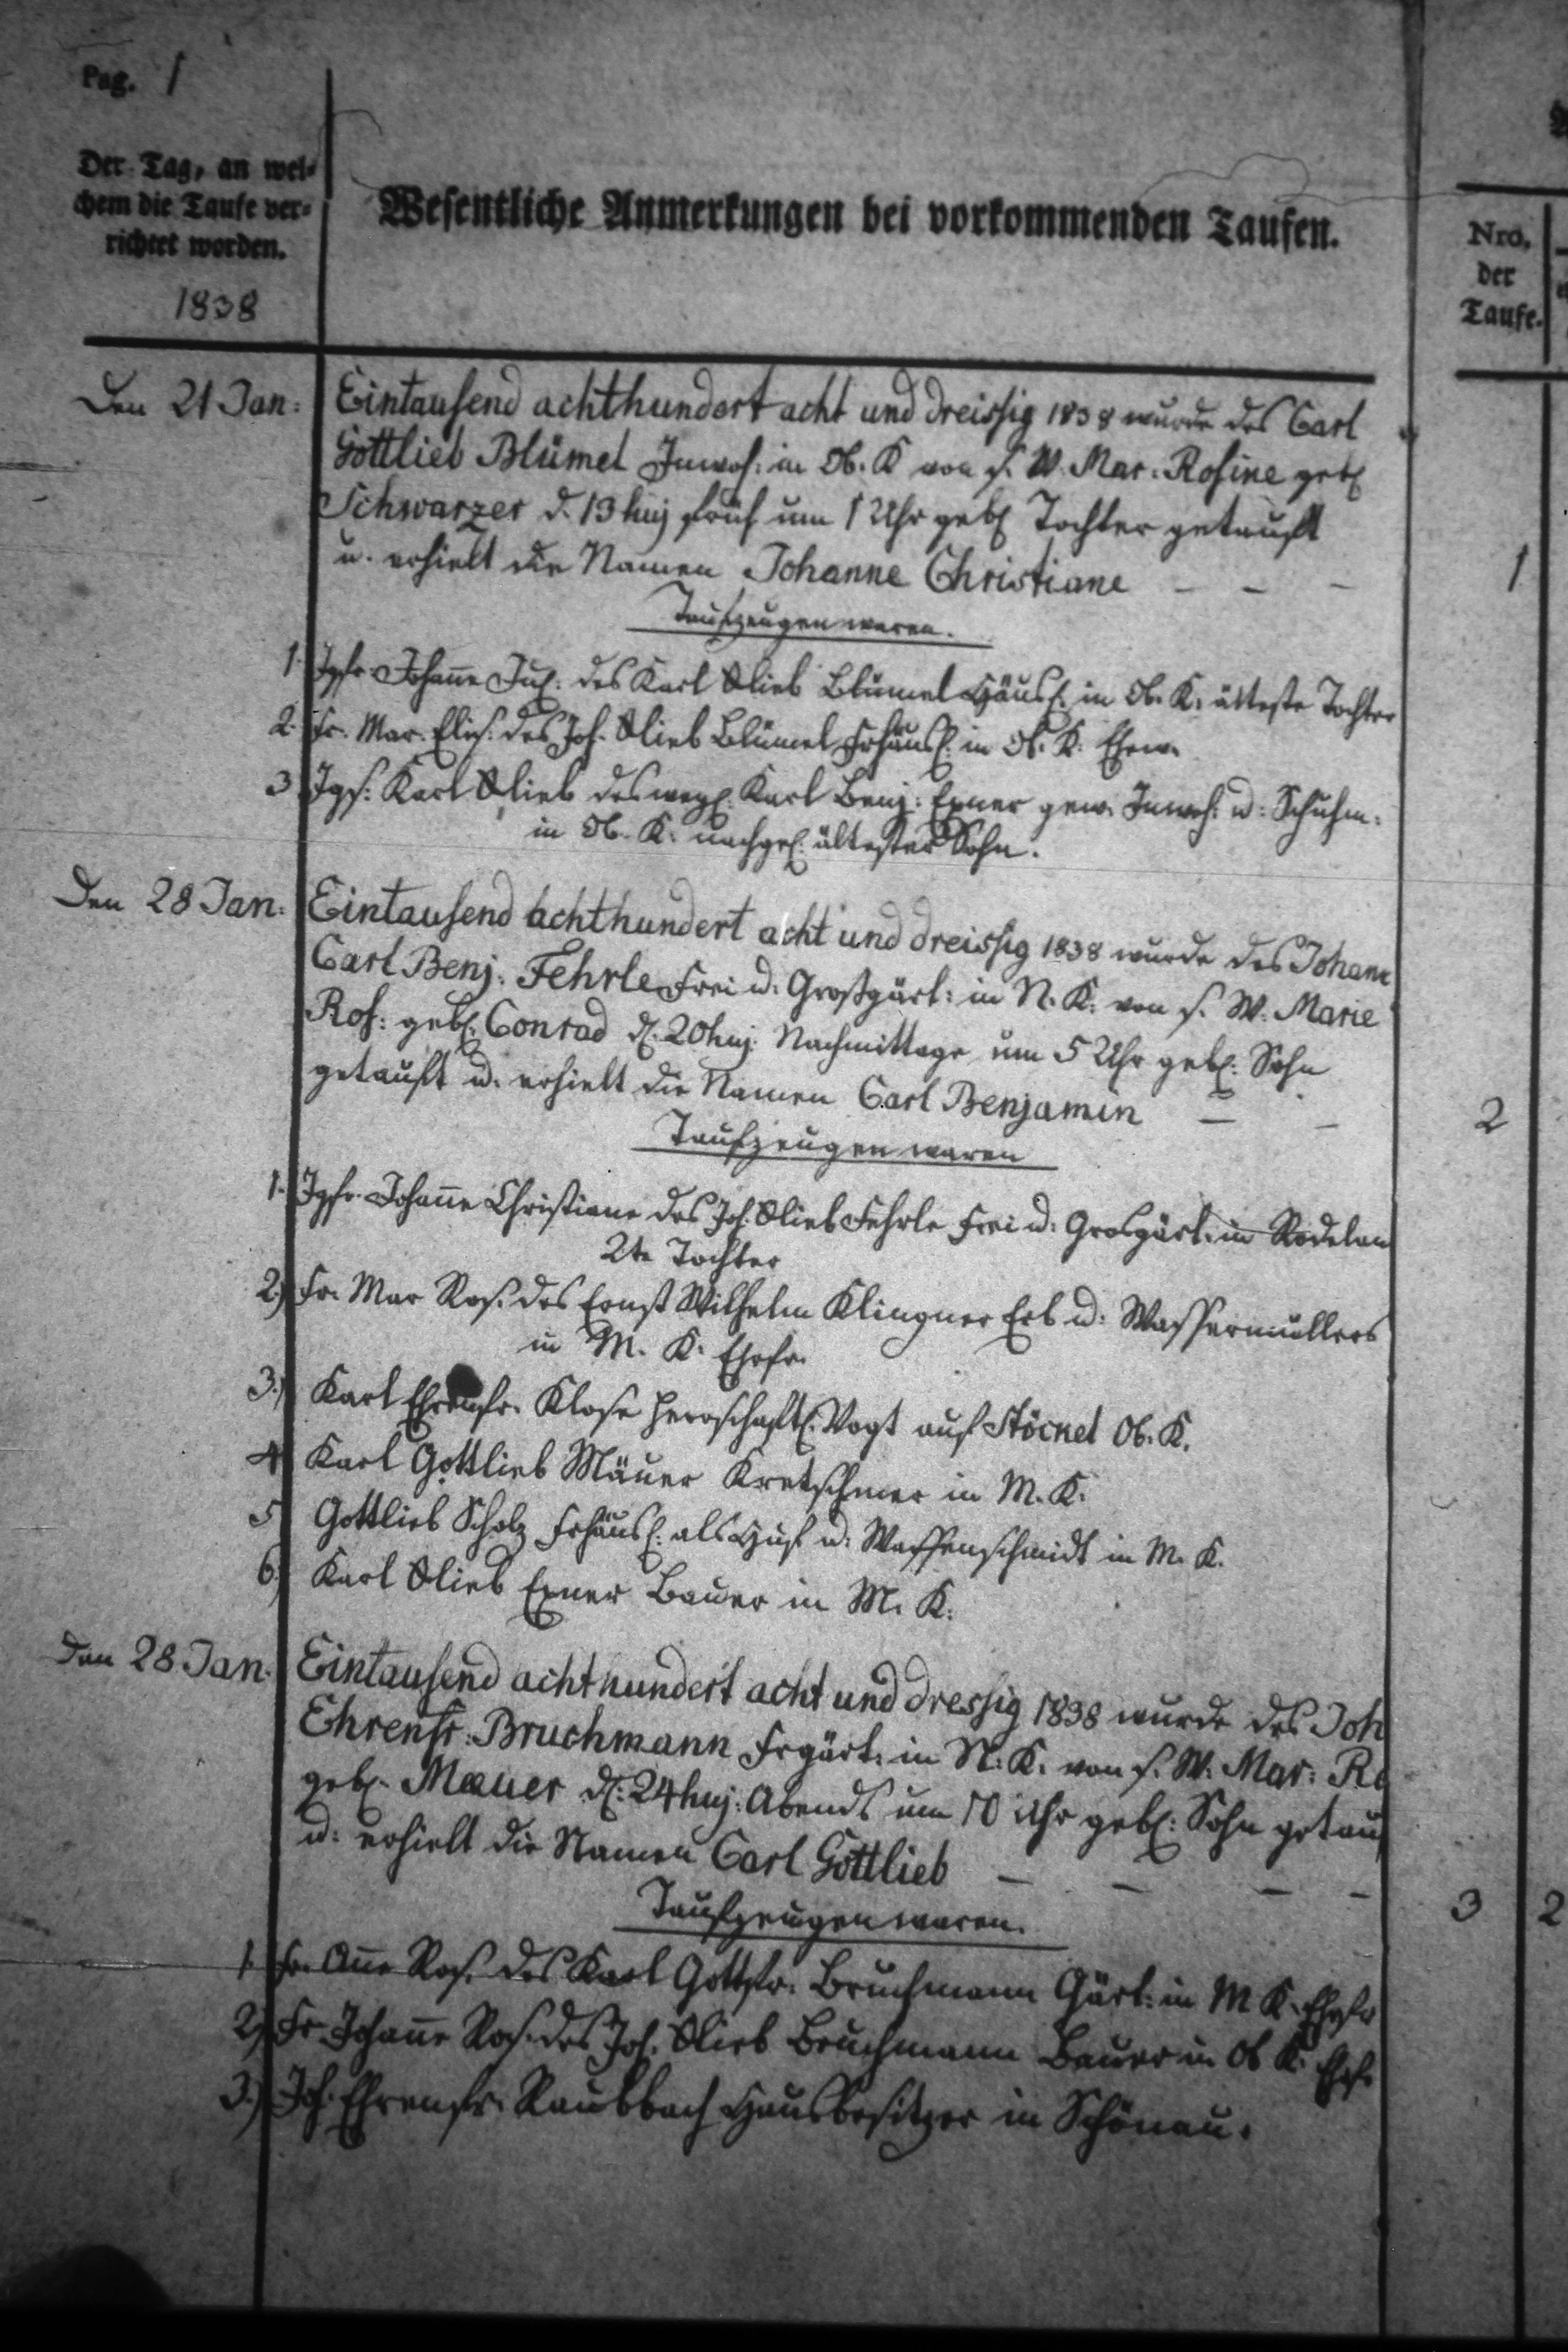 Pag. 1
Der Tag, an wel-
chem die Taufe ver-
richtet worden.
1838
Wesentliche Anmerkungen bei vorkommenden Taufen.
Nro.
der
Taufe.
Den 21 Jan:
Eintausend achthundert acht und dreissig 1838 wurde des Carl
Gottlieb Blümel Inwoh: in Ob. K von s. W. Mar. Rosine geb.
Schwarzer d. 13 huj früh um 1 Uhr geb. Tochter getauft
u. erhielt die Namen Johanne Christiane – – –
1
Taufzeugen waren.
1. Jgfr. Johanne Jul. des Karl Glieb Blümel Häusl. in Ob. K. älteste Tochter
2. Fr. Mar. Elis. des Joh. Glieb Blümel Frhäusl. in Ob. K. Ehew.
3 Jgs. Karl Glieb des weyl. Karl Benj: Exner gew. Inwoh: u: Schuhm:
in Ob. K: nachgel. ältester Sohn.
Den 28 Jan:
Eintausend achthundert acht und dreissig 1838 wurde des Johann
Carl Benj. Fehrle Frei u: Großgärt: in N. K. von s. W. Marie
Ros: geb. Conrad d. 20 huj: Nachmittags um 5 Uhr geb: Sohn
getauft u. erhielt die Namen Carl Benjamin – –
2
Taufzeugen waren
1. Jgfr. Johanne Christiane des Joh. Glieb Fehrle Frei u: Grosgärt: in Rödelan
2te Tochter
2.) Fr. Mar Ros. des Ernst Wilhelm Klingner Erb u: Wassermüllers
in M. K. Ehefr.
3.) Karl Ehrenfr. Klose herrschaftl. Vogt auf Stöckel Ob. K.
4 Karl Gottlieb Mäuer Kretschmer in M. K.
5 Gottlieb Scholz Frhäusl. als Huf u: Waffenschmidt in M. K.
6.) Karl Glieb Exner Bauer in M. K.
Den 28 Jan.
Eintausend achthundert acht und dressig 1838 wurde des Joh
Ehrenfr: Bruchmann Frgärt: in N. K. von s. W. Mar: Ro
geb. Mauer d: 24 huj: Abends um 10 Uhr geb: Sohn getau
u: erhielt die Namen Carl Gottlieb – – – –
3 2
Taufzeugen waren.
1. Fr. Anne Ros. des Karl Gottfr. Bruchmann Gärt: in M K. Ehefr
2.) Fr Johanne Ros. des Joh. Glieb Bruchmann Bauer in Ob K. Ehefr.
3.) Joh. Ehrenfr. Raubbach Hausbesitzer in Schönau.